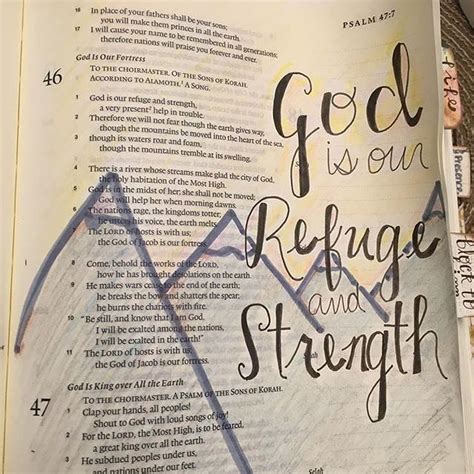 PSALM 47:7
16 In place of your fathers shall be your sons;
you will make them princes in all the earth.
17 I will cause your name to be remembered in all generations;
therefore nations will praise you forever and ever.
God Is Our Fortress
46 TO THE CHOIRMASTER. OF THE SONS OF KORAH.
ACCORDING TO ALAMOTH.¹ A SONG.
1 God is our refuge and strength,
a very present² help in trouble.
2 Therefore we will not fear though the earth gives way,
though the mountains be moved into the heart of the sea,
3 though its waters roar and foam,
though the mountains tremble at its swelling.
4 There is a river whose streams make glad the city of God,
the holy habitation of the Most High.
5 God is in the midst of her; she shall not be moved;
God will help her when morning dawns.
6 The nations rage, the kingdoms totter;
he utters his voice, the earth melts.
7 The LORD of hosts is with us;
the God of Jacob is our fortress.
8 Come, behold the works of the LORD,
how he has brought desolations on the earth.
9 He makes wars cease to the end of the earth;
he breaks the bow and shatters the spear;
he burns the chariots with fire.
10 "Be still, and know that I am God.
I will be exalted among the nations,
I will be exalted in the earth!"
11 The LORD of hosts is with us;
the God of Jacob is our fortress.
Selah
God Is King over All the Earth
47 TO THE CHOIRMASTER. A PSALM OF THE SONS OF KORAH.
1 Clap your hands, all peoples!
Shout to God with loud songs of joy!
2 For the LORD, the Most High, is to be feared,
a great king over all the earth.
3 He subdued peoples under us,
and nations under our feet.
Selah
God
is our
Refuge
and
Strength
life
Presence